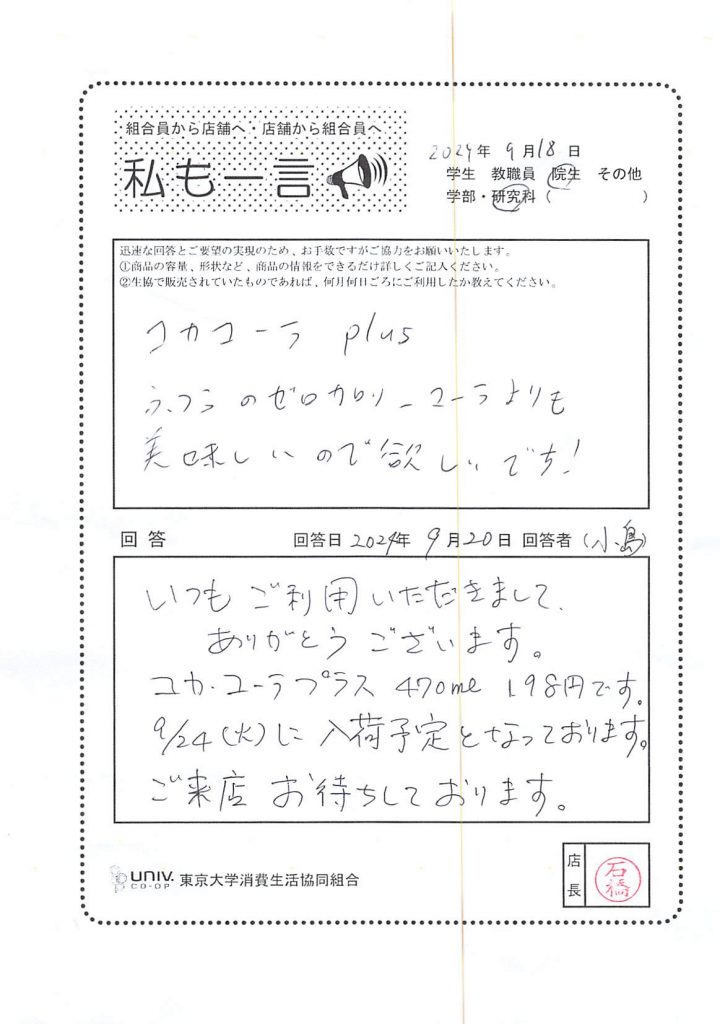 組合員から店舗へ・店舗から組合員へ
私も一言
2024年 9月18日
学生 教職員 院生 その他
学部・研究科 ( )
迅速な回答とご要望の実現のため、お手数ですがご協力をお願いいたします。
①商品の容量、形状など、商品の情報をできるだけ詳しくご記入ください。
②生協で販売されていたものであれば、何月何日ごろにご利用したか教えてください。
コカコーラ plus
ふつうのゼロカロリーコーラよりも
美味しいので欲しいです!
回答 回答日 2024年 9月20日 回答者 (小島)
いつもご利用いただきまして、
ありがとうございます。
コカ・コーラプラス 470ml 198円です。
9/24(火)に入荷予定となっております。
ご来店お待ちしております。
UNIV. CO-OP 東京大学消費生活協同組合
店長 石橋